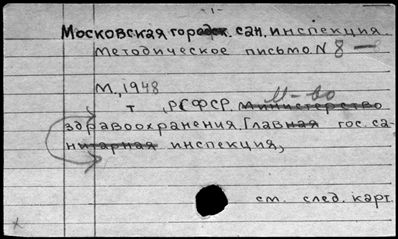 - 1 -
Московская городск. сан. инспекция.
Методическое письмо N 8 —
М., 1948
М-во
т , РСФСР. Министерство
здравоохранения. Главная гос. са-
нитарная инспекция,
см. след. карт.